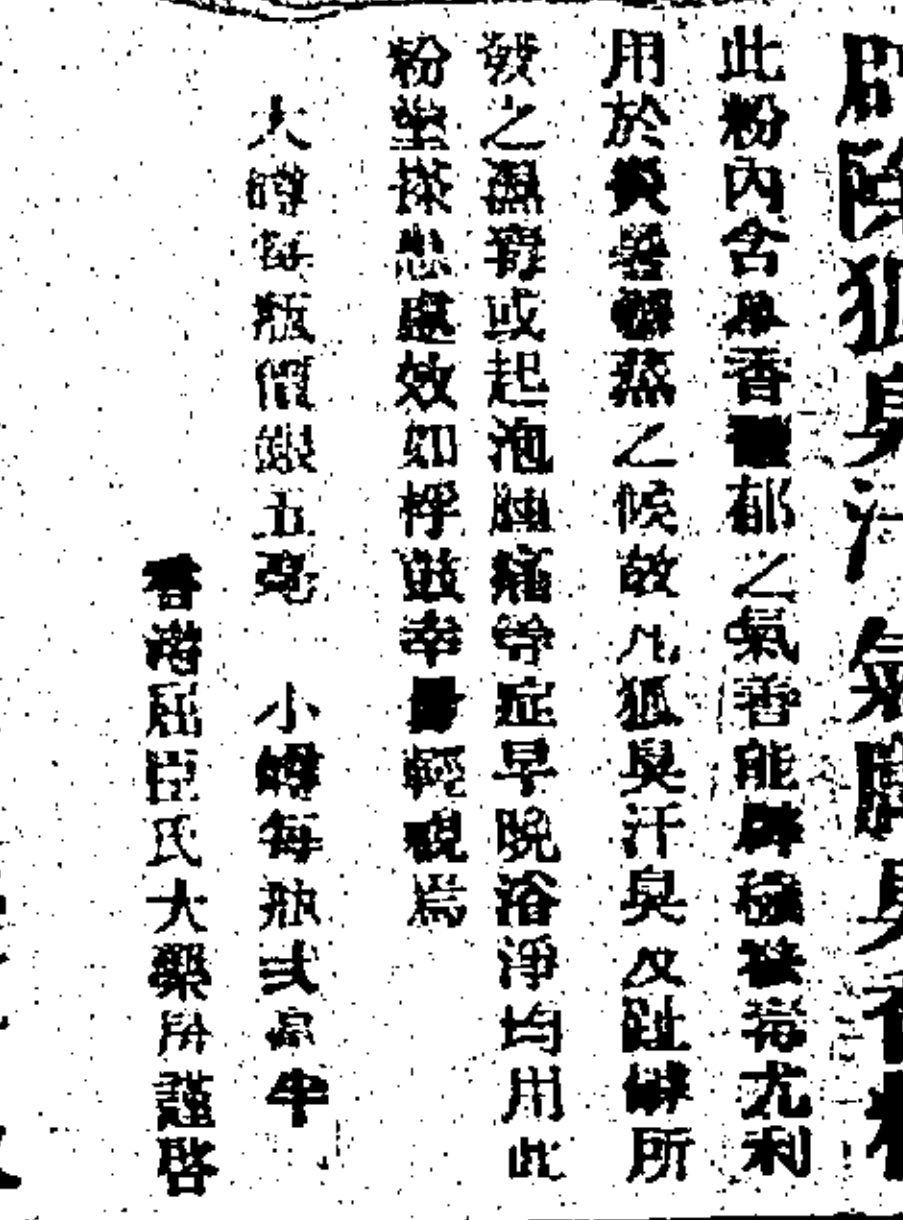 除狐臭汗氣體臭香粉
此粉內含異香馥郁之氣善能辟穢袪毒尤利
用於炎暑蒸之候故凡狐臭汗臭及趾罅所
發之濕或起泡腫痛等症早晚浴淨均用此
粉塗搽患處效如桴鼓幸輕視焉
大罇每瓶價銀五毫 小罇每瓶弍毫半
香港屈臣氏大藥房謹啓